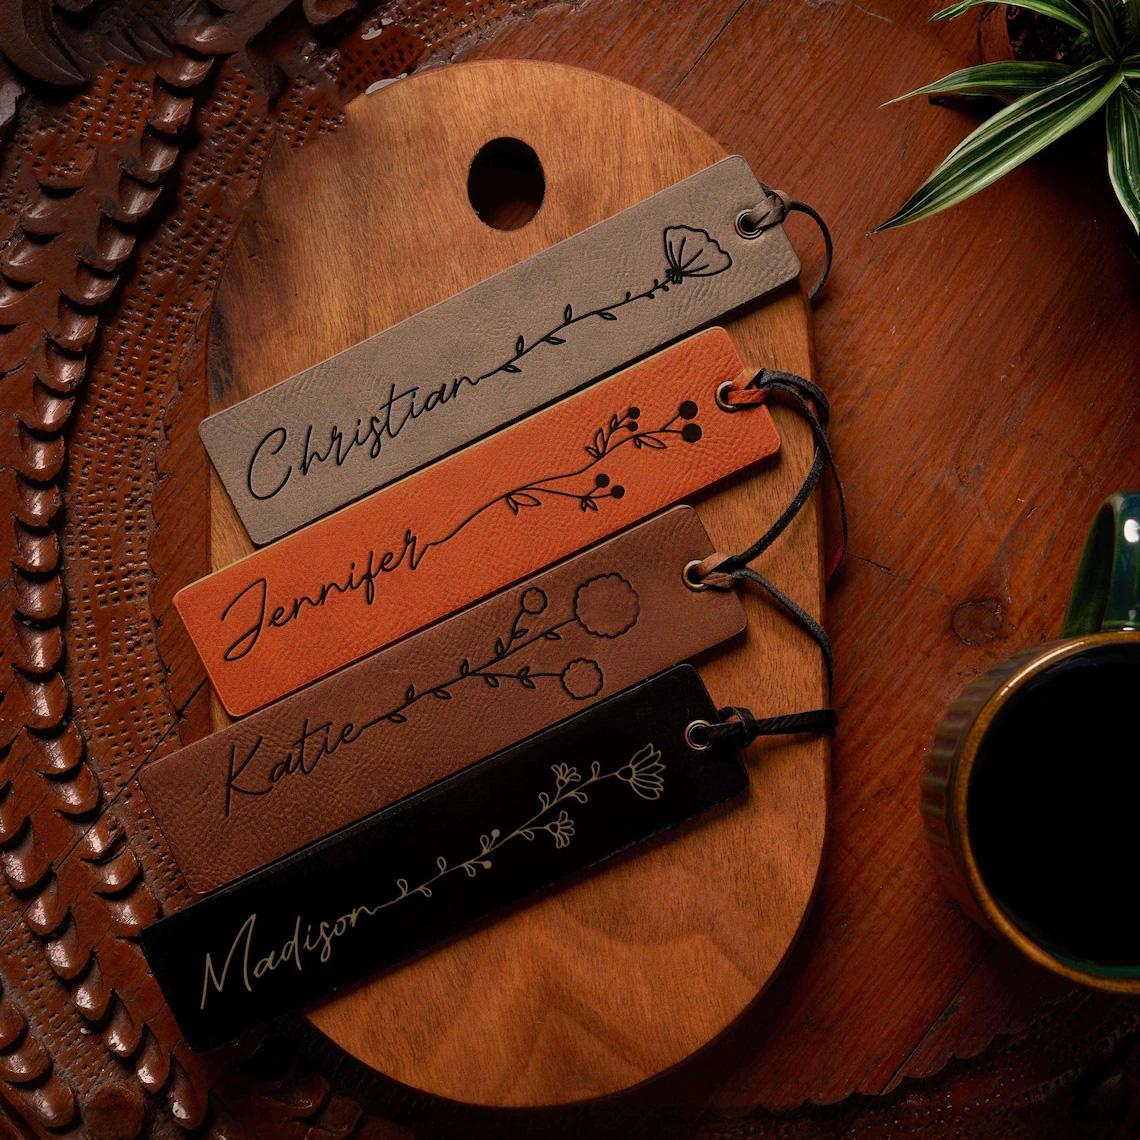 Christian
Jennifer
Katie
Madison